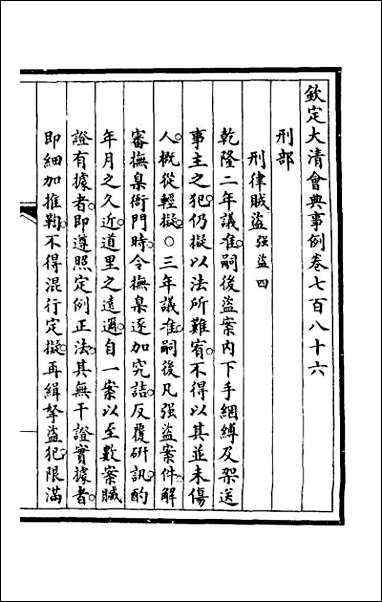 欽定大清會典事例卷七百八十六
刑部
刑律賊盜強盜四
乾隆二年議准嗣後盜案內下手綑縛及架送
事主之犯仍擬以法所難宥不得以其並未傷
人概從輕擬○三年議准嗣後凡强盜案件解
審撫臬衙門時令撫臬逐加究詰反覆研訊酌
年月之久近道里之遠邇自一案以至數案贓
證有據者即遵照定例正法其無干證實據者
即細加推鞫不得混行定擬再緝拏盜犯限滿